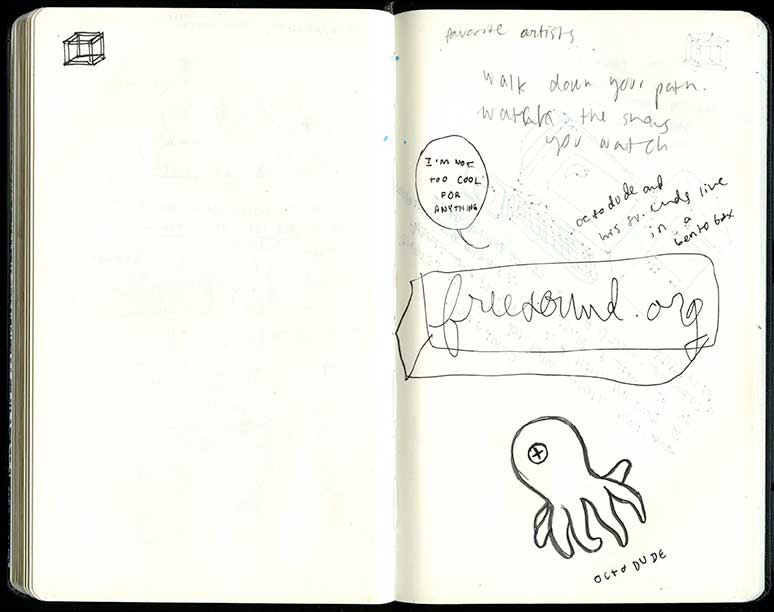 favorite artists
walk down your path.
watch the
you watch
I'M NOT
TOO COOL
FOR
ANYTHING
octodude and
his live
in a
bento box
freesound.org
OCTODUDE